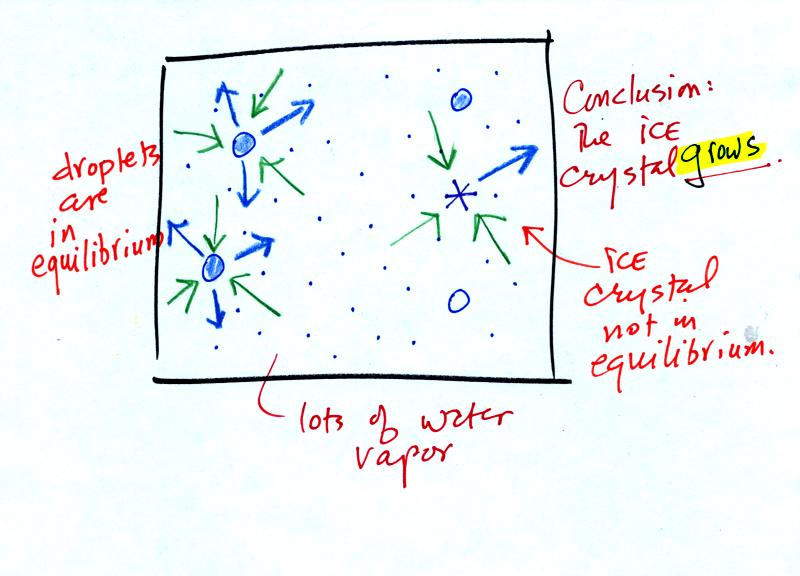 droplets
are
in
equilibrium
Conclusion:
The ice
crystal grows.
ice
crystal
not in
equilibrium.
lots of water
vapor